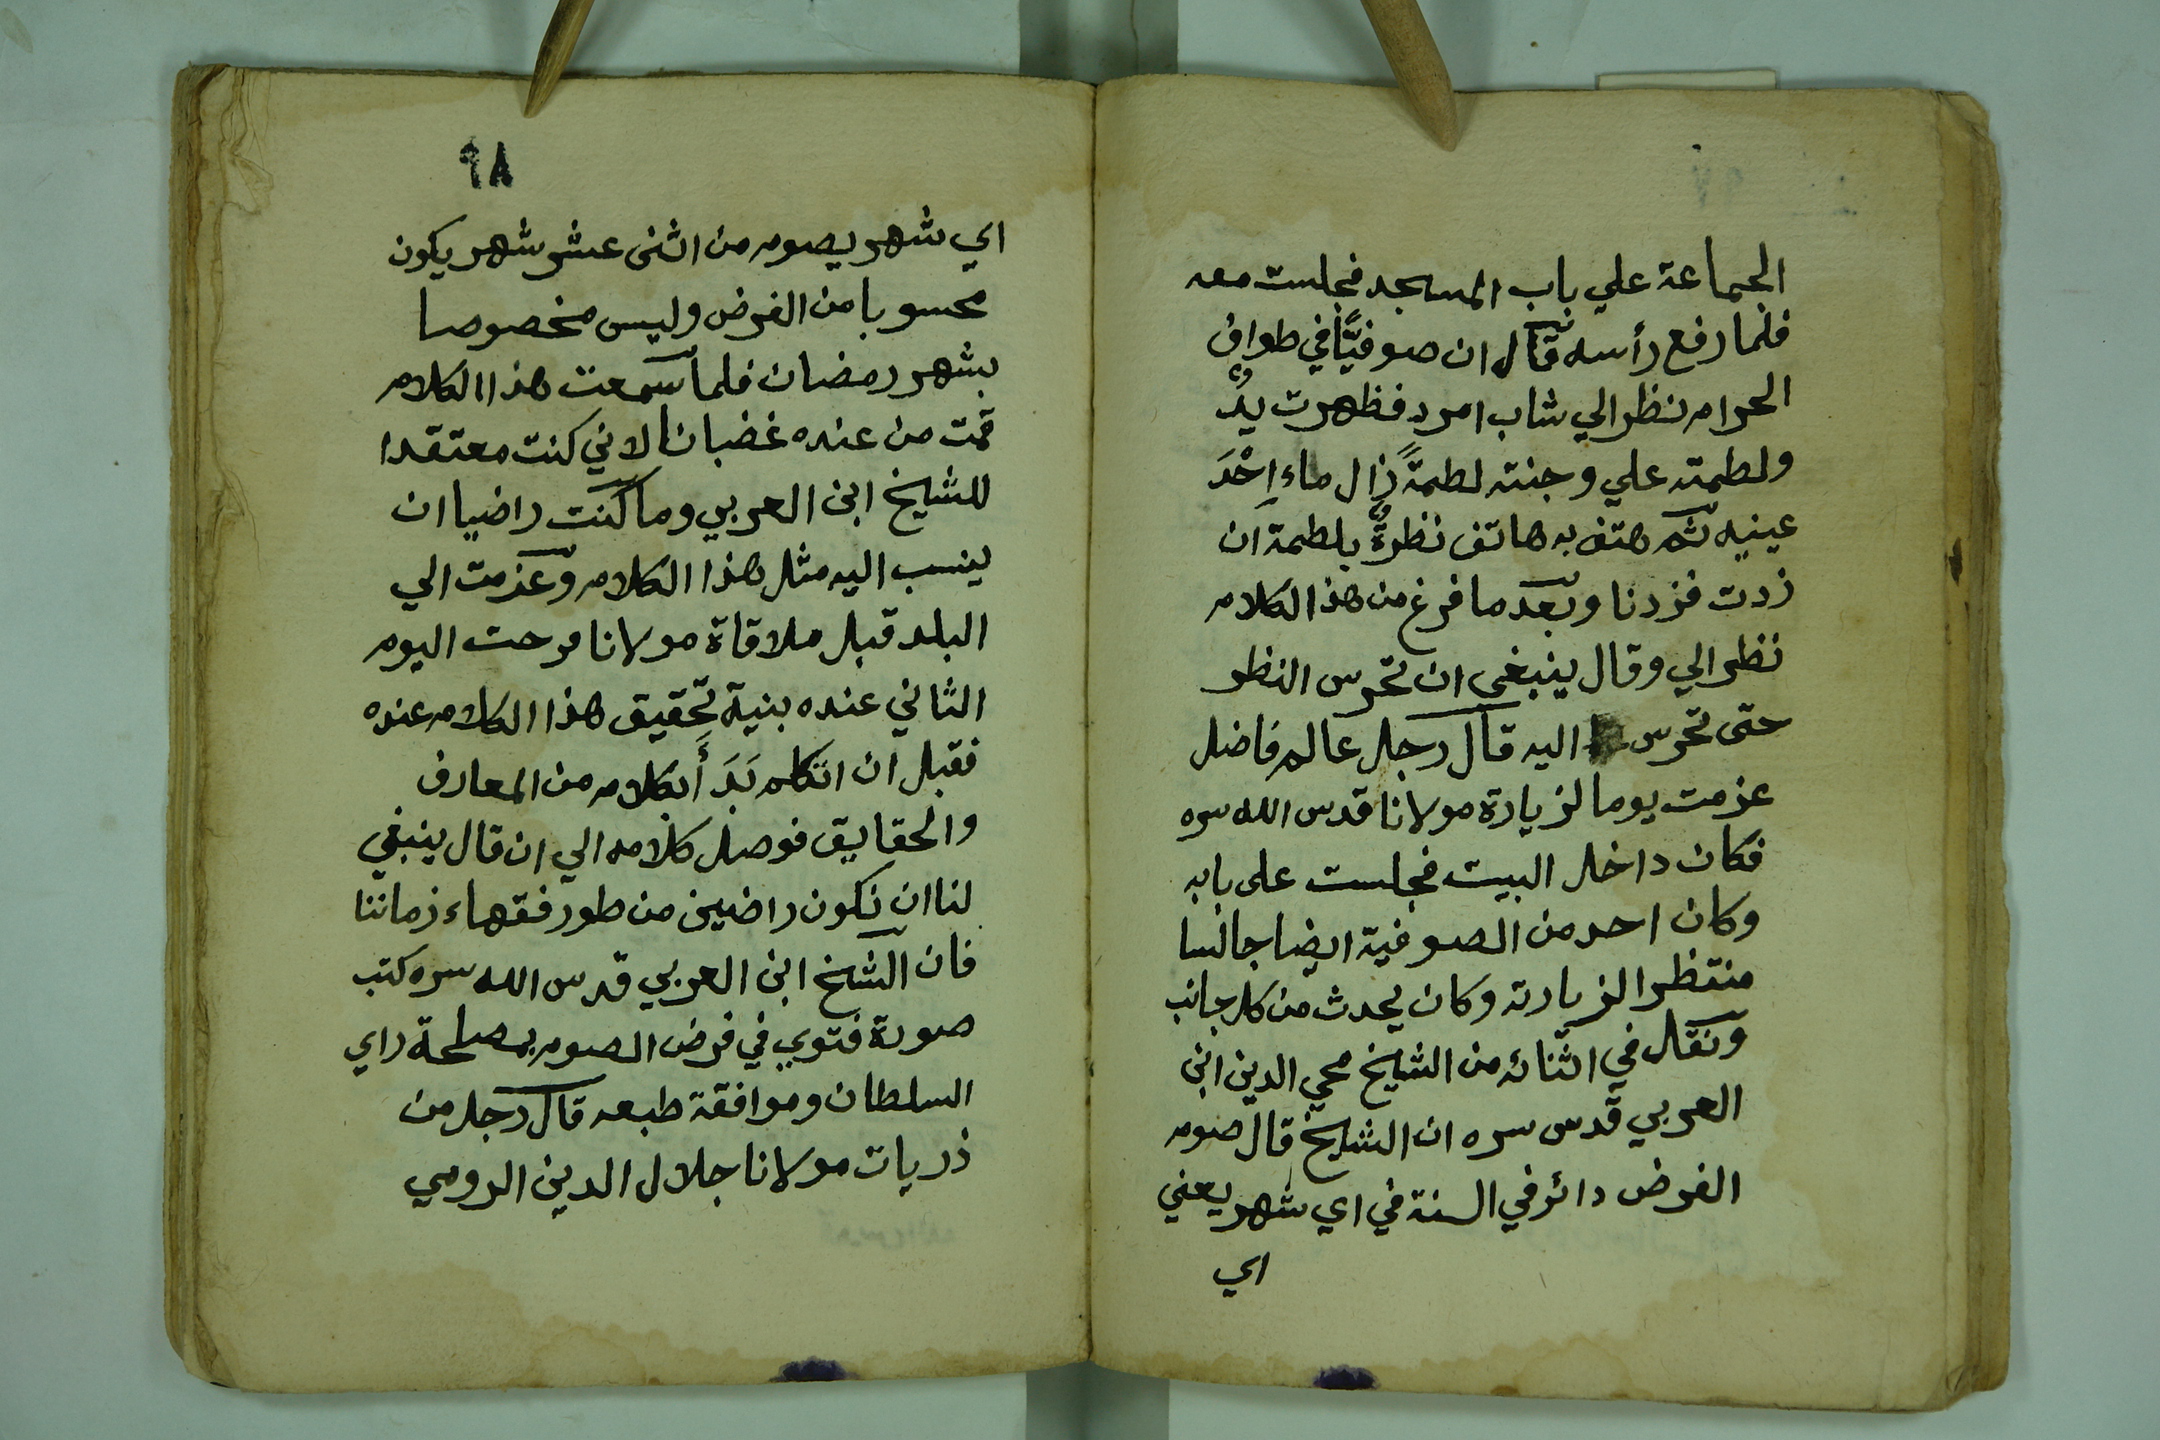 الجماعة علي باب المسجد فجلست معه
فلما رفع رأسه قال ان صوفيًّا في طواف
الحرام نظر الي شاب امرد فظهرت يدٌ
ولطمته علي وجنته لطمةً زال ماء اِحْدَ
عينيه ثم هتف به هاتف نظرةٌ بلطمة ان
زدت فزدنا وبعد ما فرغ من هذا الكلام
نظر الي وقال ينبغي ان تحرس النظر
حتى تحرس اليه قال رجل عالم فاضل
عزمت يوما لزيارة مولانا قدس الله سره
فكان داخل البيت فجلست على بابه
وكان احد من الصوفية ايضا جالسا
منتظر الزيارته وكان يحدث من كل جانب
ونقال في اثنائه من الشيخ محي الدين ابن
العربي قدس سره ان الشيخ قال صوم
الفرض دائر في السنة في اي شهر يعني
اي
٩٨
اي شهر يصوم من اثنى عشر شهر يكون
محسوبا من الفرض وليس مخصوصا
بشهر رمضان فلما سمعت هذا الكلام
قمت من عنده غضبانا لاني كنت معتقدا
للشيخ ابن العربي وما كنت راضيا ان
ينسب اليه مثل هذا الكلام وعزمت الي
البلد قبل ملاقاة مولانا فرحت اليوم
الثاني عنده بنية تحقيق هذا الكلام عنده
فقبل ان اتكلم بَدَأَ بكلام من المعارف
والحقايق فوصل كلامه الي ان قال ينبغي
لنا ان نكون راضين من طور فقهاء زماننا
فان الشيخ ابن العربي قدس الله سره كتب
صورة فتوي في فرض الصوم بمصلحة راي
السلطان وموافقة طبعه قال رجل من
ذريات مولانا جلال الدين الرومي